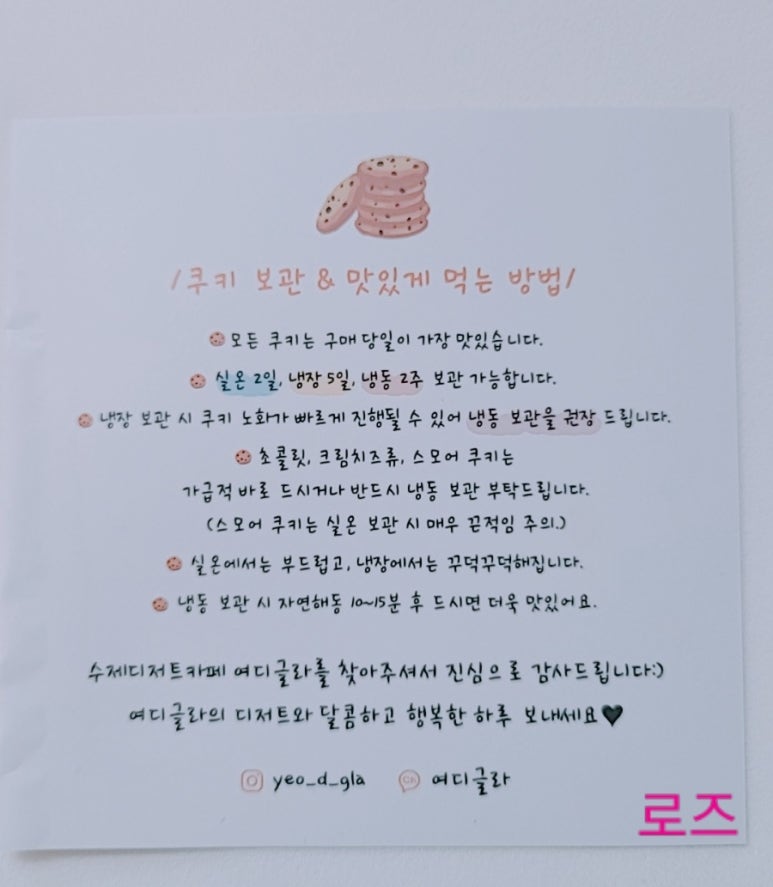 /쿠키 보관 & 맛있게 먹는 방법/
모든 쿠키는 구매 당일이 가장 맛있습니다.
실온 2일, 냉장 5일, 냉동 2주 보관 가능합니다.
냉장 보관 시 쿠키 노화가 빠르게 진행될 수 있어 냉동 보관을 권장 드립니다.
초콜릿, 크림치즈류, 스모어 쿠키는
가급적 바로 드시거나 반드시 냉동 보관 부탁드립니다.
(스모어 쿠키는 실온 보관 시 매우 끈적임 주의.)
실온에서는 부드럽고, 냉장에서는 꾸덕꾸덕해집니다.
냉동 보관 시 자연해동 10~15분 후 드시면 더욱 맛있어요.
수제디저트카페 여디글라를 찾아주셔서 진심으로 감사드립니다:)
여디글라의 디저트와 달콤하고 행복한 하루 보내세요🖤
yeo_d_gla 여디글라
로즈